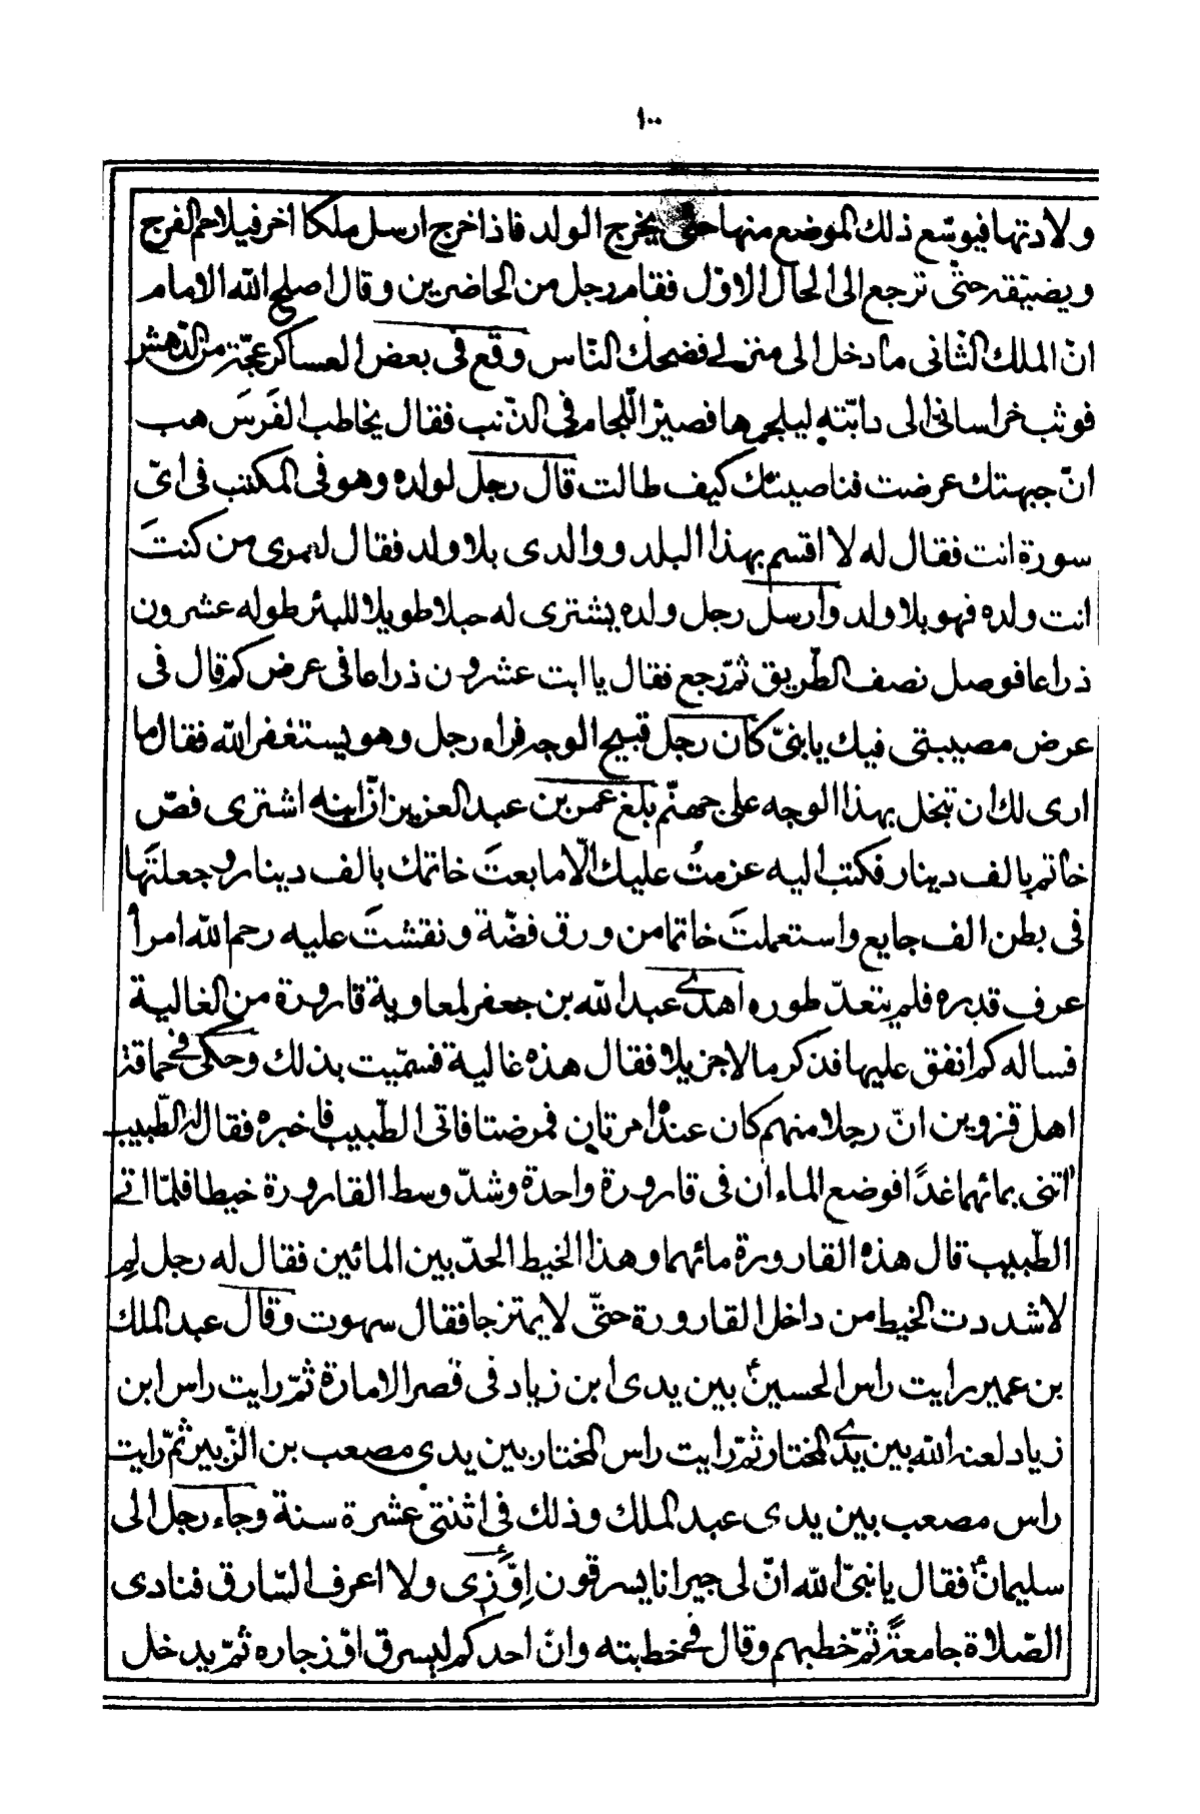 ١٠٠
ولادتها فيوسّع ذلك الموضع منها حتّى يخرج الولد فاذا خرج ارسل ملكا اخر فيلاحم الفرج
ويضيّقه حتّى ترجع الى الحال الاوّل فقام رجل من الحاضرين وقال اصلح الله الامام
انّ الملك الثّانى ما دخل الى منزلى فضحك النّاس وقع فى بعض العساكر عجّة من الدّهش
فوثب خراسانىّ الى دابّته ليلجمها فصيّر اللّجام فى الذّنب فقال يخاطب الفَرَسَ هب
انّ جبهتك عرضت فناصيتك كيف طالت قال رجل لولده وهو فى المكتب فى اىّ
سورة انت فقال له لا اقسم بهذا البلد ووالدى بلا ولد فقال لعمرى من كنتَ
انت ولده فهو بلا ولد وارسل رجل ولده يشترى له حبلا طويلا للبئر طوله عشرون
ذراعا فوصل نصف الطّريق ثمّ رجع فقال يا ابت عشرون ذراعا فى عرض كم قال فى
عرض مصيبتى فيك يا بنىّ كان رجل قبيح الوجه فراه رجل وهو يستغفر الله فقال ما
ارى لك ان تبخل بهذا الوجه على جهنّم بلغ عمر بن عبد العزيز انّ ابنه اشترى فصّ
خاتم بالف دينار فكتب اليه عزمتُ عليك الّا ما بعتَ خاتمك بالف دينار وجعلتَها
فى بطن الف جايع واستعملتَ خاتما من ورق فضّة ونقشتَ عليه رحم الله امرأ
عرف قدره فلم يتعدّ طوره اهدى عبد الله بن جعفر لمعاوية قارورة من الغالية
فساله كم انفق عليها فذكر مالا جزيلا فقال هذه غالية فسمّيت بذلك وحكى فى حماقة
اهل قزوين انّ رجلا منهم كان عنده امرتان فمرضتا فاتى الطّبيب فاخبره فقال له الطّبيب
ائتنى بمائهما غدًا فوضع الماءان فى قارورة واحدة وشدّ وسط القارورة خيطا فلمّا اتى
الطّبيب قال هذه القارورة مائهما وهذا الخيط الحدّ بين المائين فقال له رجل لِم
لا شددت الخيط من داخل القارورة حتّى لا يمتزجا فقال سهوت وقال عبد الملك
بن عمير رايت راس الحسينؑ بين يدى ابن زياد فى قصر الامارة ثمّ رايت راس ابن
زياد لعنه الله بين يدى المختار ثمّ رايت راس المختار بين يدى مصعب بن الزّبير ثمّ رايت
راس مصعب بين يدى عبد الملك وذلك فى اثنتى عشرة سنة وجاء رجل الى
سليمانؑ فقال يا نبىّ الله انّ لى جيرانا يسرقون اِوَّزى ولا اعرف السّارق فنادى
الصّلاة جامعةً ثمّ خطبهم وقال فى خطبته وانّ احدكم ليسرق اوّز جاره ثمّ يدخل